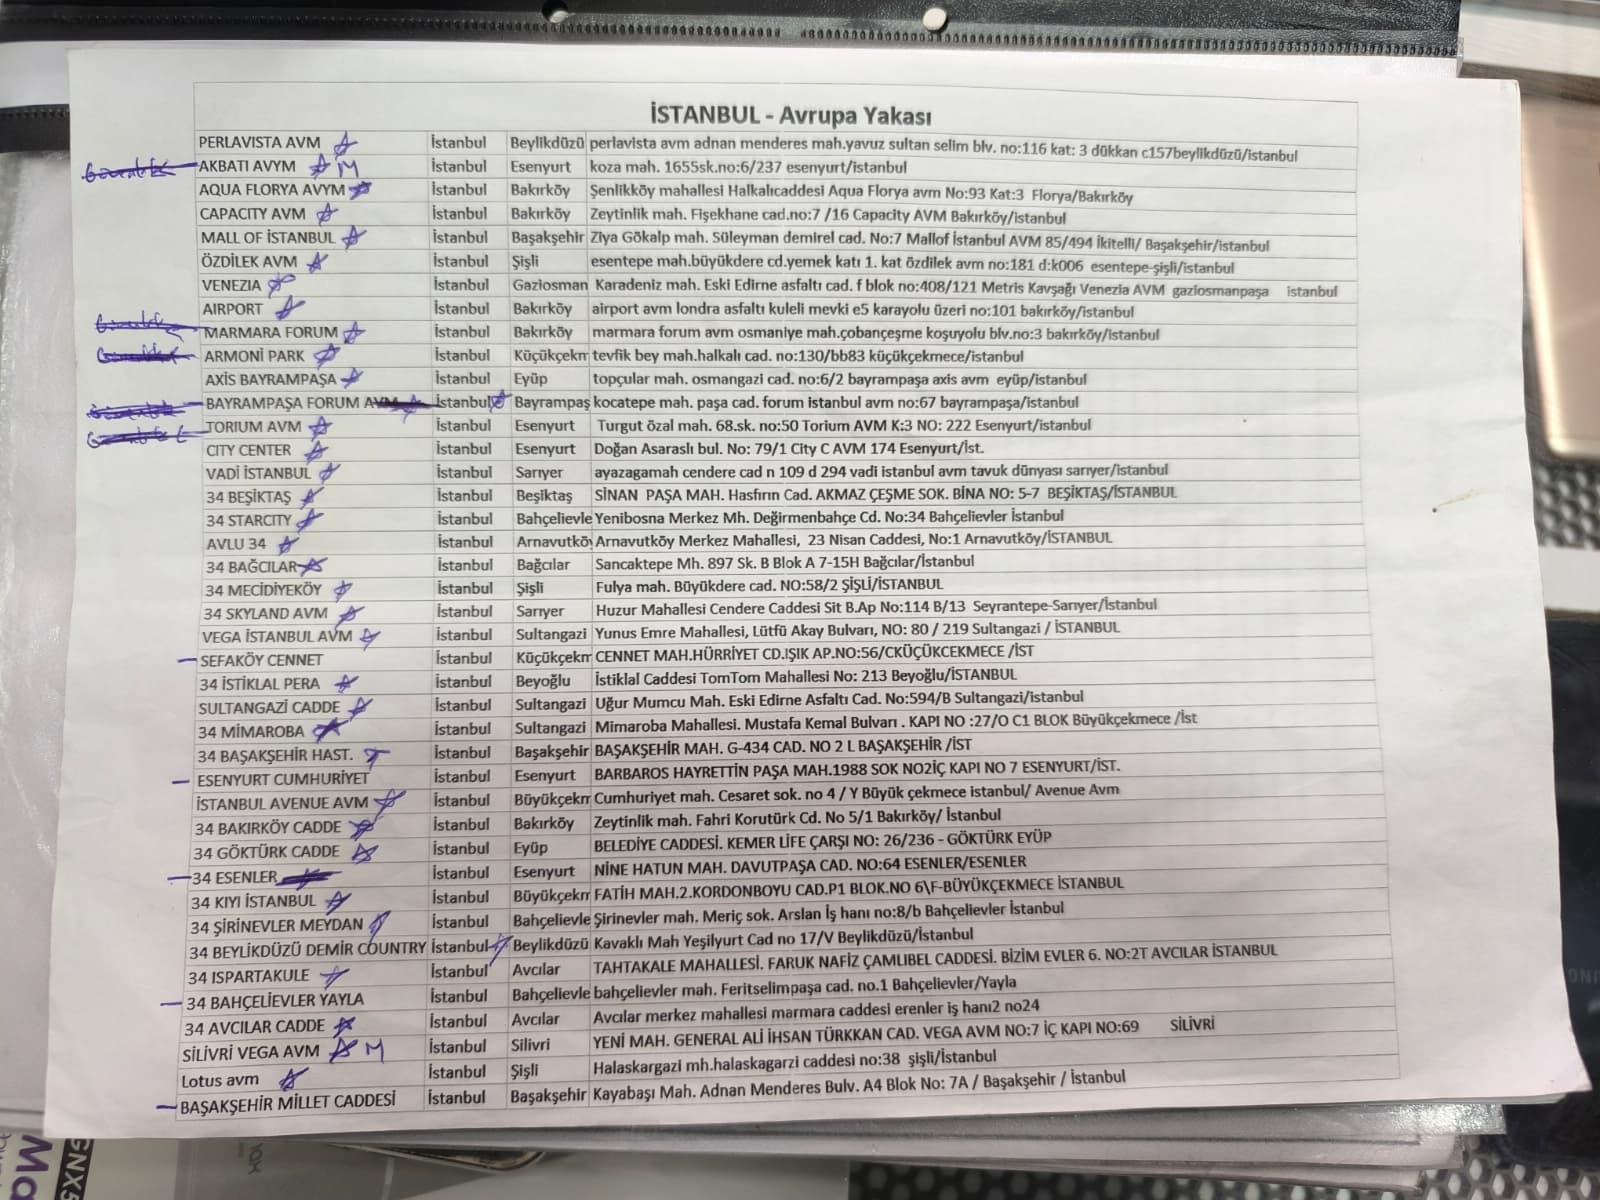 İSTANBUL - Avrupa Yakası
PERLAVISTA AVM İstanbul Beylikdüzü perlavista avm adnan menderes mah.yavuz sultan selim blv. no:116 kat: 3 dükkan c157beylikdüzü/istanbul
AKBATI AVYM M İstanbul Esenyurt koza mah. 1655sk.no:6/237 esenyurt/istanbul
AQUA FLORYA AVYM İstanbul Bakırköy Şenlikköy mahallesi Halkalıcaddesi Aqua Florya avm No:93 Kat:3 Florya/Bakırköy
CAPACITY AVM İstanbul Bakırköy Zeytinlik mah. Fişekhane cad.no:7 /16 Capacity AVM Bakırköy/istanbul
MALL OF İSTANBUL İstanbul Başakşehir Ziya Gökalp mah. Süleyman demirel cad. No:7 Mallof İstanbul AVM 85/494 İkitelli/ Başakşehir/istanbul
ÖZDİLEK AVM İstanbul Şişli esentepe mah.büyükdere cd.yemek katı 1. kat özdilek avm no:181 d:k006 esentepe-şişli/istanbul
VENEZIA İstanbul Gaziosman Karadeniz mah. Eski Edirne asfaltı cad. f blok no:408/121 Metris Kavşağı Venezia AVM gaziosmanpaşa istanbul
AIRPORT İstanbul Bakırköy airport avm londra asfaltı kuleli mevki e5 karayolu üzeri no:101 bakırköy/istanbul
MARMARA FORUM İstanbul Bakırköy marmara forum avm osmaniye mah.çobançeşme koşuyolu blv.no:3 bakırköy/istanbul
ARMONİ PARK İstanbul Küçükçekm tevfik bey mah.halkalı cad. no:130/bb83 küçükçekmece/istanbul
AXİS BAYRAMPAŞA İstanbul Eyüp topçular mah. osmangazi cad. no:6/2 bayrampaşa axis avm eyüp/istanbul
BAYRAMPAŞA FORUM AVM İstanbul Bayrampaş kocatepe mah. paşa cad. forum istanbul avm no:67 bayrampaşa/istanbul
TORIUM AVM İstanbul Esenyurt Turgut özal mah. 68.sk. no:50 Torium AVM K:3 NO: 222 Esenyurt/istanbul
CITY CENTER İstanbul Esenyurt Doğan Asaraslı bul. No: 79/1 City C AVM 174 Esenyurt/İst.
VADİ İSTANBUL İstanbul Sarıyer ayazagamah cendere cad n 109 d 294 vadi istanbul avm tavuk dünyası sarıyer/istanbul
34 BEŞİKTAŞ İstanbul Beşiktaş SİNAN PAŞA MAH. Hasfırın Cad. AKMAZ ÇEŞME SOK. BİNA NO: 5-7 BEŞİKTAŞ/İSTANBUL
34 STARCITY İstanbul Bahçelievle Yenibosna Merkez Mh. Değirmenbahçe Cd. No:34 Bahçelievler İstanbul
AVLU 34 İstanbul Arnavutköy Arnavutköy Merkez Mahallesi, 23 Nisan Caddesi, No:1 Arnavutköy/İSTANBUL
34 BAĞCILAR İstanbul Bağcılar Sancaktepe Mh. 897 Sk. B Blok A 7-15H Bağcılar/İstanbul
34 MECİDİYEKÖY İstanbul Şişli Fulya mah. Büyükdere cad. NO:58/2 ŞİŞLİ/İSTANBUL
34 SKYLAND AVM İstanbul Sarıyer Huzur Mahallesi Cendere Caddesi Sit B.Ap No:114 B/13 Seyrantepe-Sarıyer/İstanbul
VEGA İSTANBUL AVM İstanbul Sultangazi Yunus Emre Mahallesi, Lütfü Akay Bulvarı, NO: 80 / 219 Sultangazi / İSTANBUL
SEFAKÖY CENNET İstanbul Küçükçekm CENNET MAH.HÜRRİYET CD.IŞIK AP.NO:56/CKÜÇÜKCEKMECE /İST
34 İSTİKLAL PERA İstanbul Beyoğlu İstiklal Caddesi TomTom Mahallesi No: 213 Beyoğlu/İSTANBUL
SULTANGAZİ CADDE İstanbul Sultangazi Uğur Mumcu Mah. Eski Edirne Asfaltı Cad. No:594/B Sultangazi/istanbul
34 MİMAROBA İstanbul Sultangazi Mimaroba Mahallesi. Mustafa Kemal Bulvarı . KAPI NO :27/O C1 BLOK Büyükçekmece /İst
34 BAŞAKŞEHİR HAST. İstanbul Başakşehir BAŞAKŞEHİR MAH. G-434 CAD. NO 2 L BAŞAKŞEHİR /İST
ESENYURT CUMHURİYET İstanbul Esenyurt BARBAROS HAYRETTİN PAŞA MAH.1988 SOK NO2İÇ KAPI NO 7 ESENYURT/İST.
İSTANBUL AVENUE AVM İstanbul Büyükçekm Cumhuriyet mah. Cesaret sok. no 4 / Y Büyük çekmece istanbul/ Avenue Avm
34 BAKIRKÖY CADDE İstanbul Bakırköy Zeytinlik mah. Fahri Korutürk Cd. No 5/1 Bakırköy/ İstanbul
34 GÖKTÜRK CADDE İstanbul Eyüp BELEDİYE CADDESİ. KEMER LİFE ÇARŞI NO: 26/236 - GÖKTÜRK EYÜP
34 ESENLER İstanbul Esenyurt NİNE HATUN MAH. DAVUTPAŞA CAD. NO:64 ESENLER/ESENLER
34 KIYI İSTANBUL İstanbul Büyükçekm FATİH MAH.2.KORDONBOYU CAD.P1 BLOK.NO 6\F-BÜYÜKÇEKMECE İSTANBUL
34 ŞİRİNEVLER MEYDAN İstanbul Bahçelievle Şirinevler mah. Meriç sok. Arslan İş hanı no:8/b Bahçelievler İstanbul
34 BEYLİKDÜZÜ DEMİR COUNTRY İstanbul Beylikdüzü Kavaklı Mah Yeşilyurt Cad no 17/V Beylikdüzü/İstanbul
34 ISPARTAKULE İstanbul Avcılar TAHTAKALE MAHALLESİ. FARUK NAFİZ ÇAMLIBEL CADDESİ. BİZİM EVLER 6. NO:2T AVCILAR İSTANBUL
34 BAHÇELİEVLER YAYLA İstanbul Bahçelievle bahçelievler mah. Feritselimpaşa cad. no.1 Bahçelievler/Yayla
34 AVCILAR CADDE İstanbul Avcılar Avcılar merkez mahallesi marmara caddesi erenler iş hanı2 no24
SİLİVRİ VEGA AVM M İstanbul Silivri YENİ MAH. GENERAL ALİ İHSAN TÜRKKAN CAD. VEGA AVM NO:7 İÇ KAPI NO:69 SİLİVRİ
Lotus avm İstanbul Şişli Halaskargazi mh.halaskagarzi caddesi no:38 şişli/İstanbul
BAŞAKŞEHİR MİLLET CADDESİ İstanbul Başakşehir Kayabaşı Mah. Adnan Menderes Bulv. A4 Blok No: 7A / Başakşehir / İstanbul